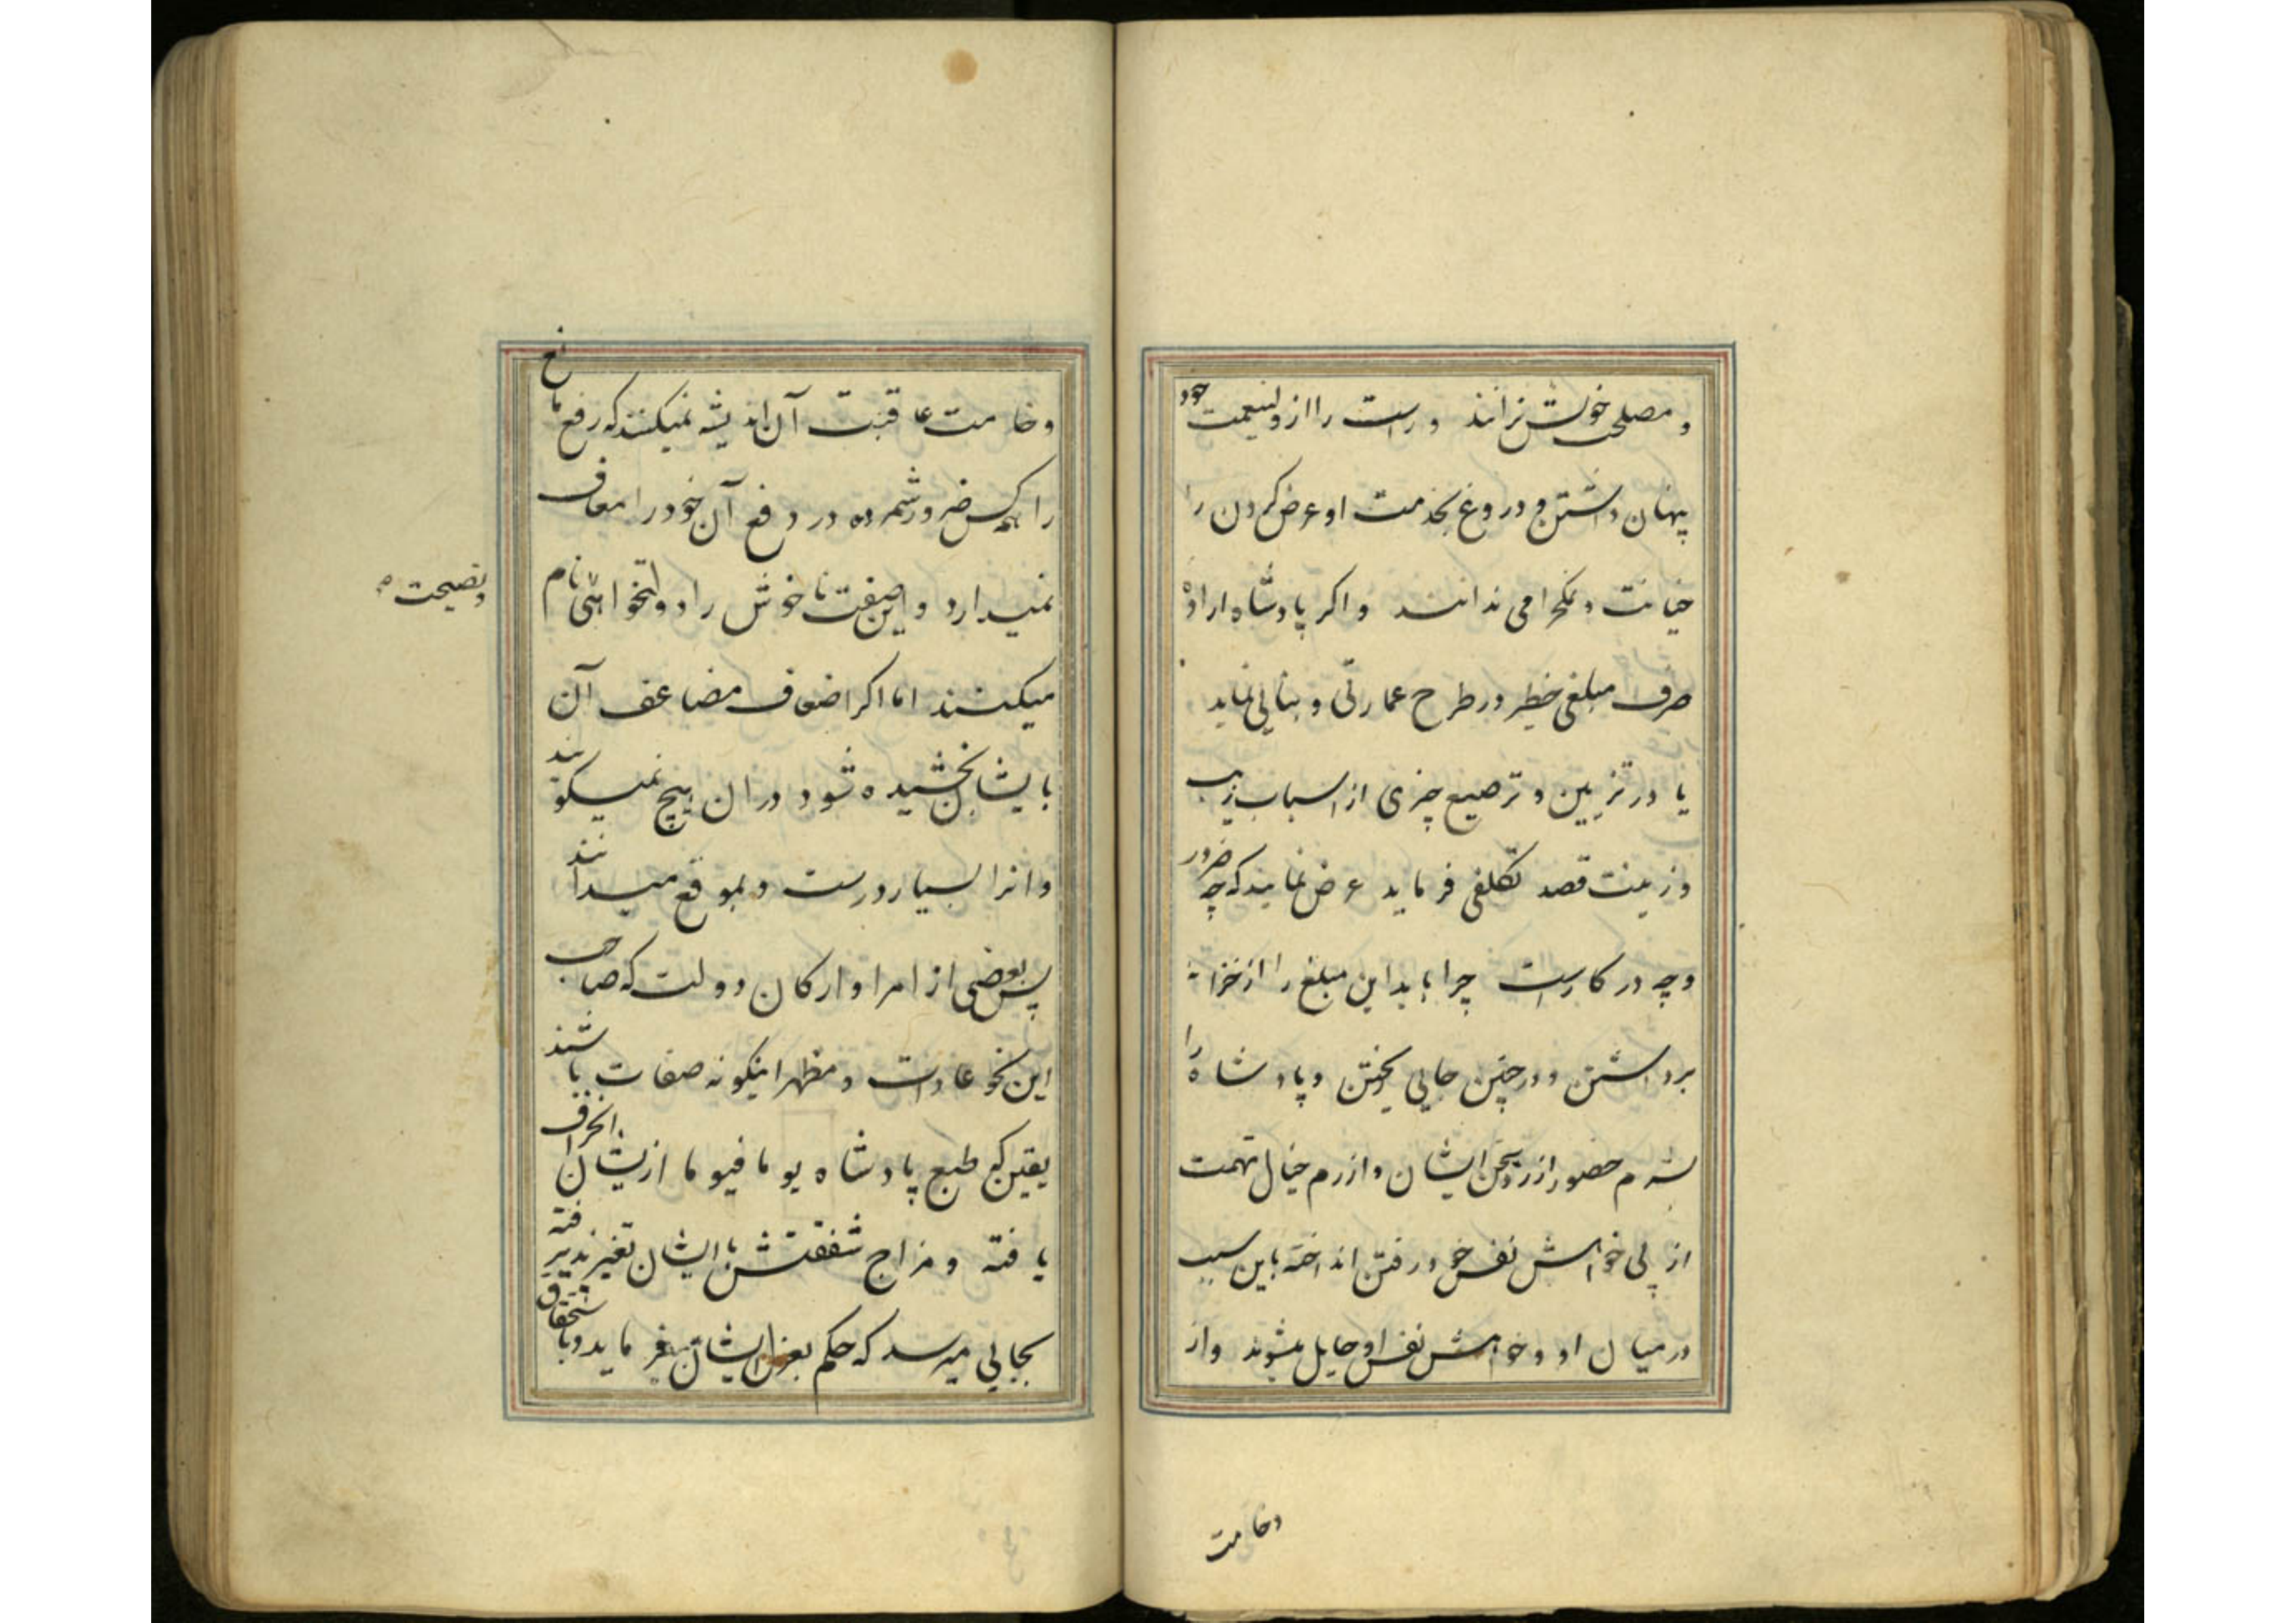 و مصلحت خویش ندانند و راست را از ولینعمت خود
پنهان داشتن و دروغ بخدمت او عرض کردن را
خیانت و نمکحرامی ندانند و اگر پادشاه اراده
صرف مبلغی خطیر در طرح عمارتی و بنایی نماید
یا در تزیین و ترصیع چیزی از اسباب زیب
و زینت قصد تکلفی فرماید عرض نمایند که چه ضرور
و چه در کارست چرا باید این مبلغ را از خزانه
برداشتن و در چنین جایی ریختن و پادشاه را
شرم حضور از رد سخن ایشان و ازرم خیال تهمت
از پی خواهش نفس خود رفتن انداخته باین سبب
در میان او و خواهش نفس او حایل میشوند و از
وخامت
وخامت عاقبت آن اندیشه نمیکنند که رفع مانع
را همه کس ضرور شمرده در دفع آن خود را معاف
نمیدارد و این صفت ناخوش را دولتخواهی نام
ونصیحت
میکنند اما اگر اضعاف مضاعف آن
بایشان بخشیده شود در ان هیچ نمیکویند
و انرا بسیار درست و بموقع میدانند
پس بعضی از امرا و ارکان دولت که صاحب
این نحو عادات و مظهر اینکونه صفات باشند
یقین که طبع پادشاه یوما فیوما از یشان انحراف
یافته و مزاج شفقتش با ایشان تغیر پذیرفته
بجایی میرسد که حکم بعزل ایشان میفرماید و باستحقاق